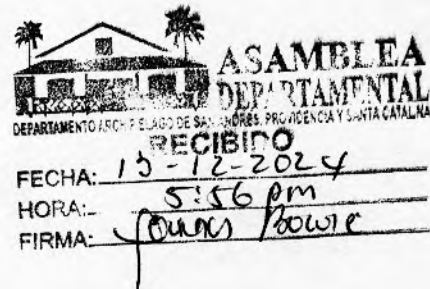 ASAMBLEA
DEPARTAMENTAL
DEPARTAMENTO ARCHIPIELAGO DE SAN ANDRES, PROVIDENCIA Y SANTA CATALINA
RECIBIDO
FECHA: 13-12-2024
HORA: 5:56 pm
FIRMA: Bowie